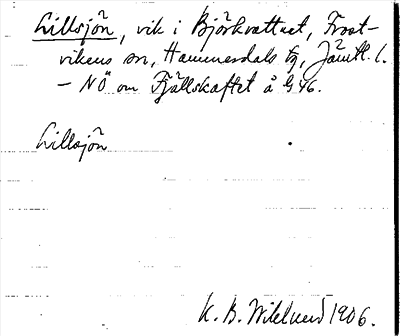 Lillsjön, vik i Björkvattnet, Frost-
vikens sn, Hammerdals tg, Jämtl. l.
— NÖ om Fjällskaftet å G 46.
Lillsjön
K. B. Wiklund 1906.